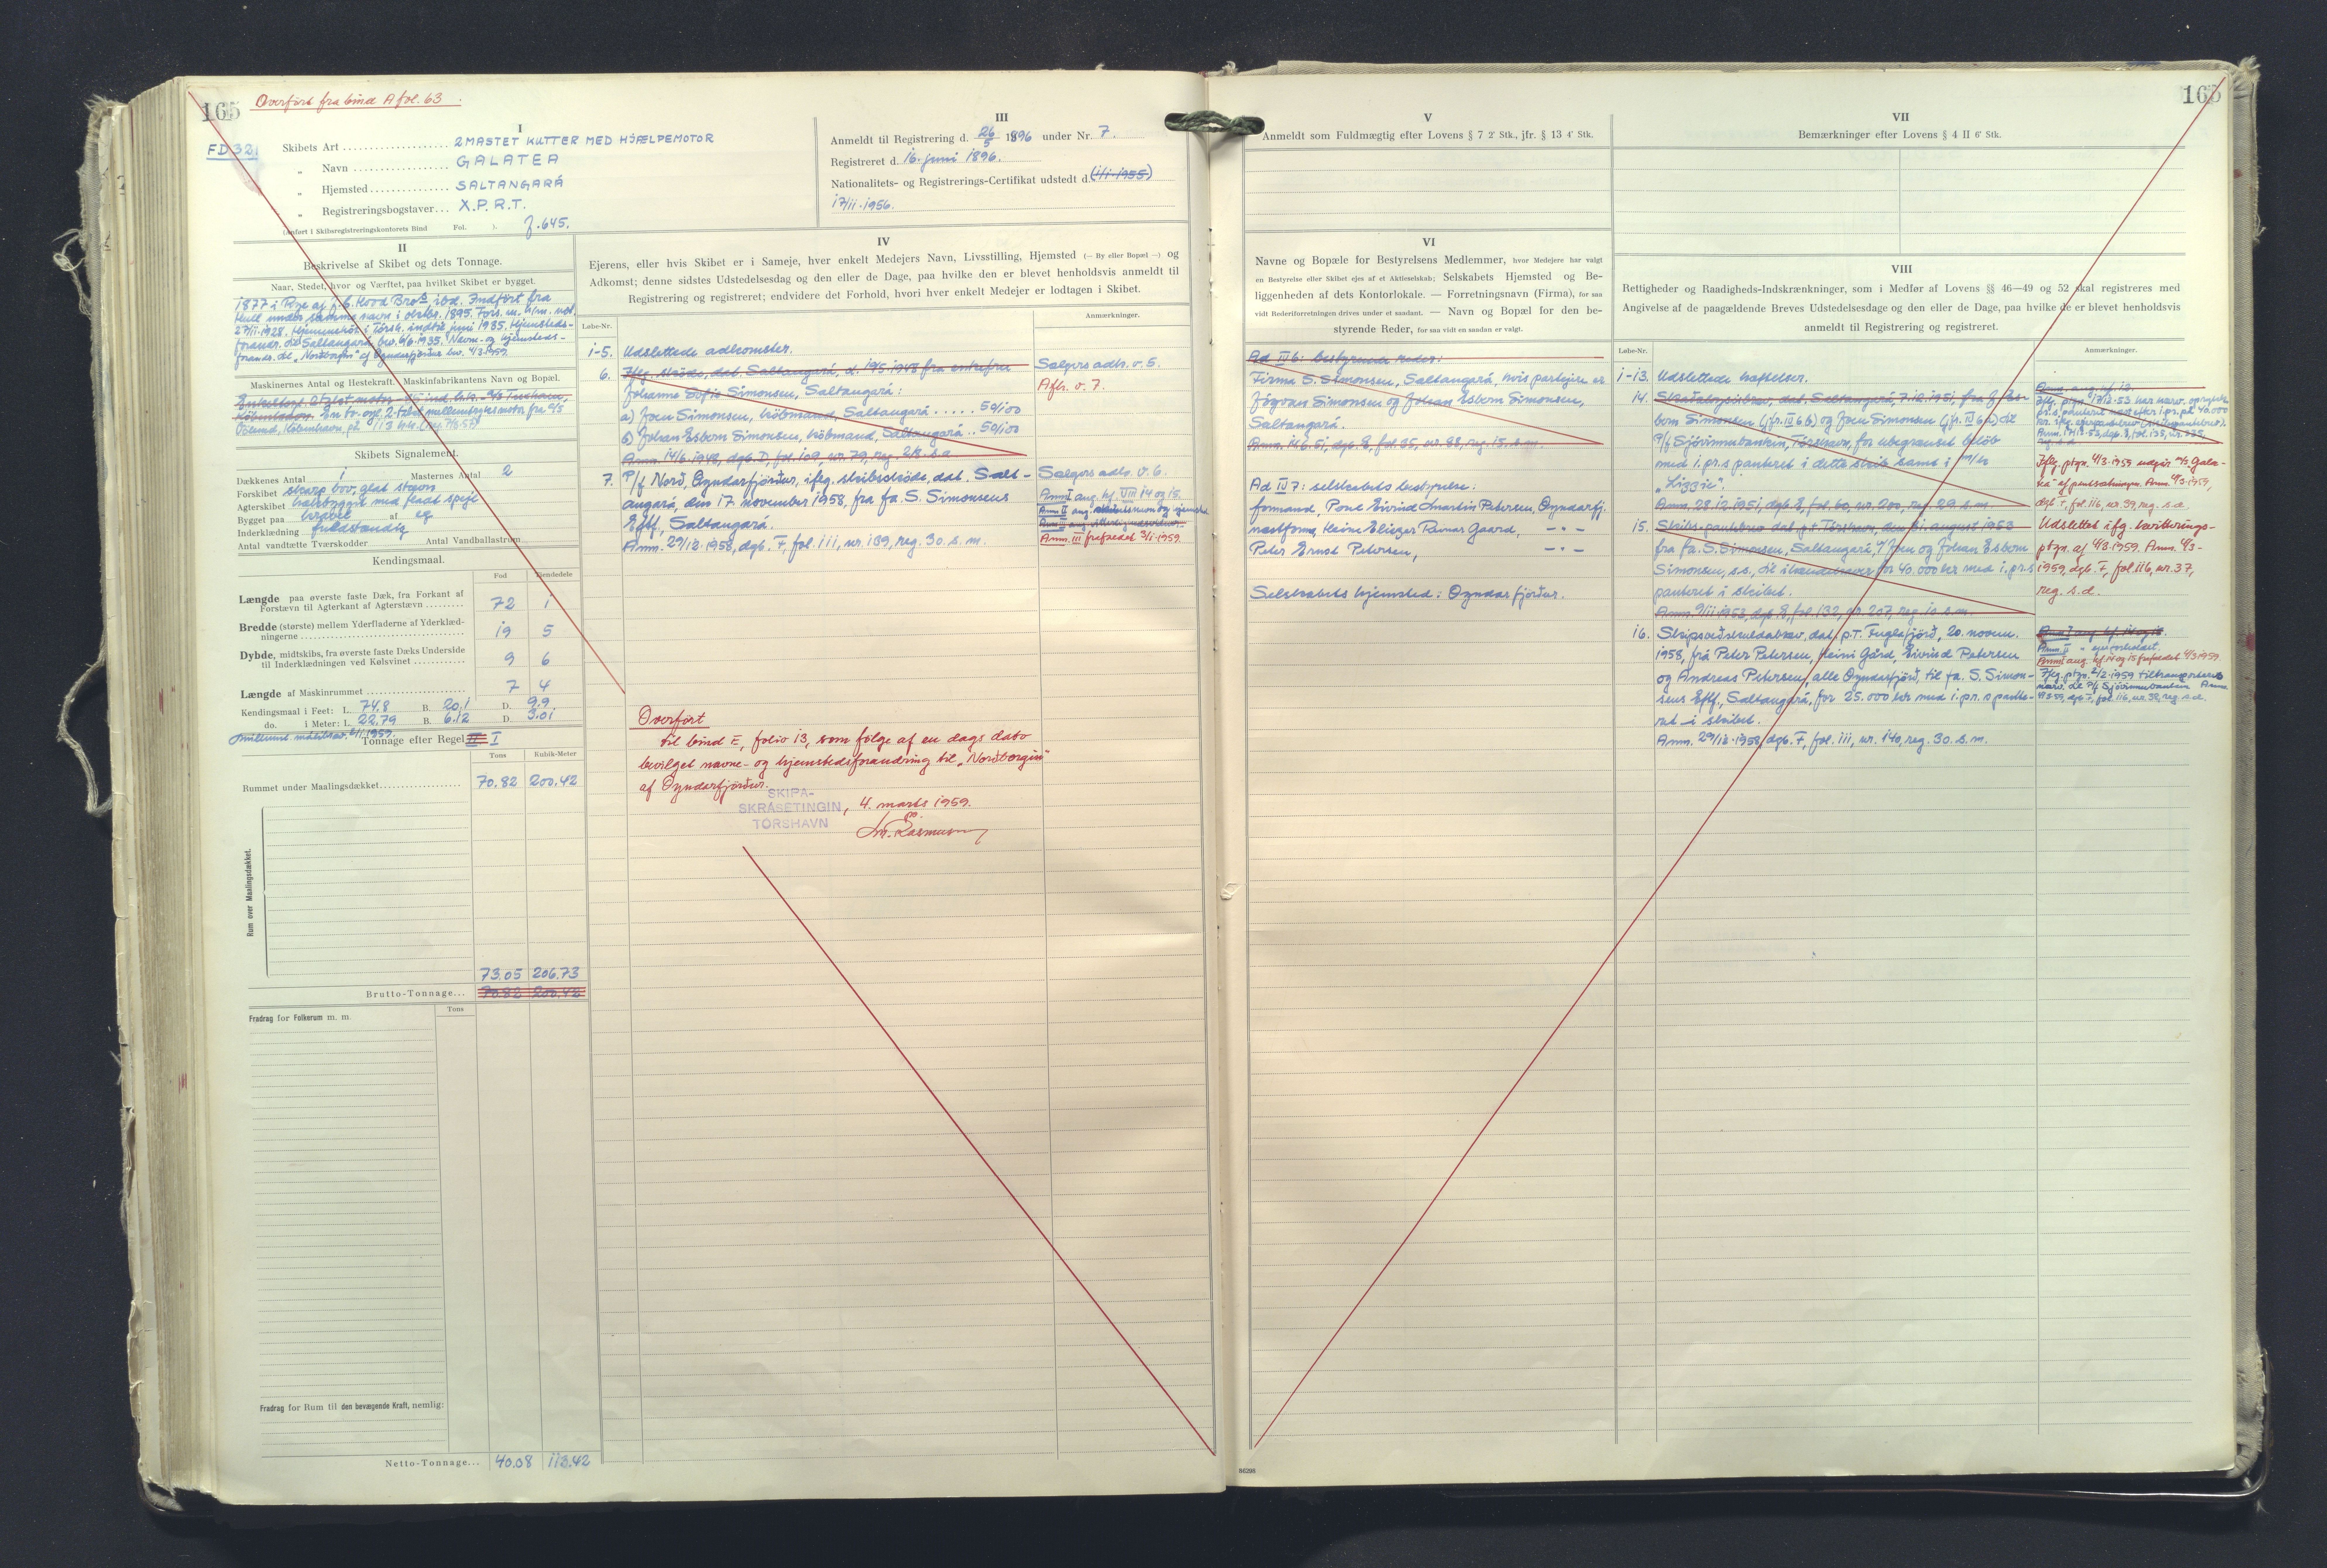 165
Overført fra bind A fol. 63.
FD 321
I
Skibets Art 2 MASTET KUTTER MED HJÆLPEMOTOR
„ Navn GALATEA
„ Hjemsted SALTANGARÁ
„ Registreringsbogstaver... X.P.R.T.
(Anført i Skibsregistreringskontorets Bind Fol. ). f. 645.
III
Anmeldt til Registrering d. 26/5 1896 under Nr. 7.
Registreret d. 16. juni 1896.
Nationalitets- og Registrerings-Certifikat udstedt d. (1/11-1955)
17/11-1956.
II
Beskrivelse af Skibet og dets Tonnage.
Naar, Stedet, hvor og Værftet, paa hvilket Skibet er bygget.
1877 i Rye af J. C. Hood Bros ibd. Indført fra
Hull under samme navn i oktbr. 1895. Fors. m. h/m. not.
27/11-1928. Hjemmehør. i Tórsh. indtil juni 1935. Hjemsteds-
forandr. til Saltangará bev. 6/6-1935. Navn- og hjemsteds-
forandr. til „Norðborgin" af Oyndarfjørður bev. 4/3-1959.
Maskinernes Antal og Hestekraft. Maskinfabrikantens Navn og Bopæl.
København. En to-cyl. 2-takts mellemtryksmotor fra A/S
Skibets Signalement.
Dækkenes Antal 1 Masternes Antal 2
Forskibet skarp bov, glat stævn
Agterskibet halvbygget med fladt spejl
Bygget paa kravel af eg
Inderklædning fuldstændig
Antal vandtætte Tværskodder Antal Vandballastrum
Kendingsmaal.
Fod Tiendedele
Længde paa øverste faste Dæk, fra Forkant af
Forstævn til Agterkant af Agterstævn 72 1
Bredde (største) mellem Yderfladerne af Yderklæd-
ningerne 19 5
Dybde, midtskibs, fra øverste faste Dæks Underside
til Inderklædningen ved Kølsvinet 9 6
Længde af Maskinrummet 7 4
Kendingsmaal i Feet: L. 74.8 B. 20.1 D. 9.9
do. i Meter: L. 22.79 B. 6.12 D. 3.01
Tonnage efter Regel II. I
Tons Kubik-Meter
Rummet under Maalingsdækket 70.82 200.42
Rum over Maalingsdækket.
73.05 206.73
Brutto-Tonnage... 70.82 200.42
Fradrag for Folkerum m. m.
Tons
Fradrag for Rum til den bevægende Kraft, nemlig:
Netto-Tonnage... 40.08 113.42
IV
Ejerens, eller hvis Skibet er i Sameje, hver enkelt Medejers Navn, Livsstilling, Hjemsted (— By eller Bopæl —) og
Adkomst; denne sidstes Udstedelsesdag og den eller de Dage, paa hvilke den er blevet henholdsvis anmeldt til
Registrering og registreret; endvidere det Forhold, hvori hver enkelt Medejer er lodtagen i Skibet.
Løbe-Nr. Anmærkninger.
1-5. Udslettede adkomster.
6. Iflg. skøde, dat. Saltangará, d. 19/5-1948 fra enkefru
Johanne Sofie Simonsen, Saltangará:
a) Joen Simonsen, købmand, Saltangará ..... 50/100
b) Johan Esbern Simonsen, købmand, Saltangará .. 50/100
Anm. 14/6-1948, dgb. D, fol. 109, nr. 79, reg. 2/8. s.a.
Sælgers adk. v. 5.
Afh. v. 7.
7. P/f Norð, Oyndarfjørður, ifølg. skibsskøde, dat. Salt-
angará, den 17. november 1958, fra fa. S. Simonsens
Eftf., Saltangará.
Anm. 29/12-1958, dgb. F, fol. 111, nr. 139, reg. 30. s. m.
Sælgers adk. v. 6.
Anm. I ang. hf. VIII 14 og 15.
Anm. III frafaldet 3/1-1959.
Overført
til bind E, folio 13, som følge af en dags dato
bevilget navne- og hjemstedsforandring til „Norðborgin"
af Oyndarfjørður.
SKIPA-
SKRÁSETINGIN, 4. marts 1959.
TÓRSHAVN
165
V
Anmeldt som Fuldmægtig efter Lovens § 7 2' Stk., jfr. § 13 4' Stk.
VI
Navne og Bopæle for Bestyrelsens Medlemmer, hvor Medejere har valgt
en Bestyrelse eller Skibet ejes af et Aktieselskab; Selskabets Hjemsted og Be-
liggenheden af dets Kontorlokale. — Forretningsnavn (Firma), for saa
vidt Rederiforretningen drives under et saadant. — Navn og Bopæl for den be-
styrende Reder, for saa vidt en saadan er valgt.
Ad IV 6: bestyrende reder:
Firma S. Simonsen, Saltangará, hvis partejere er
Jógvan Simonsen og Johan Esbern Simonsen,
Saltangará.
Anm. 14/6-51, dgb. E, fol. 35, nr. 88, reg. 15. s. m.
Ad IV 7: selskabets bestyrelse:
formand, Poul Eivind Martin Petersen, Oyndarfj.
næstform. Heine Eliezer Runar Gaard, —"—
Peter Ernst Petersen, —"—
Selskabets hjemsted: Oyndarfjørður.
VII
Bemærkninger efter Lovens § 4 II 6' Stk.
VIII
Rettigheder og Raadigheds-Indskrænkninger, som i Medfør af Lovens §§ 46—49 og 52 skal registreres med
Angivelse af de paagældende Breves Udstedelsesdage og den eller de Dage, paa hvilke de er blevet henholdsvis
anmeldt til Registrering og registreret.
Løbe-Nr. Anmærkninger.
1-13. Udslettede hæftelser.
14. Skaðabrævsbrev, dat. Saltangará, 7.12.1951, fra J. Es-
bern Simonsen (jfr. IV 6 b) og Joen Simonsen (jfr. IV 6 a) til
P/f Sjóvinnubankin, Tórshavn, for ubegrænset beløb
med 1. pr. s panteret i dette skib samt i m/k
„Lizzie".
Anm. 28.12.1951, dgb. E, fol. 60, nr. 200, reg. 29. s. m.
Ifølg. ptgn. 4/3-1959 udgår m/s Gala-
tea af pantsætningen. Anm. 4/3-1959,
dgb. F, fol. 116, nr. 39, reg. s.d.
15. Skibs-pantebrev dat. p.t. Tórshavn, den 31. august 1953
fra fa. S. Simonsen, Saltangará, v/ Joen og Johan Esbern
Simonsen, s.s., til ihændehaver for 40.000 kr. med 1. pr. s
panteret i skibet.
Anm. 9/11-1953, dgb. E, fol. 132, nr. 207, reg. 10. s. m.
Udslettet ifg. kvitterings-
ptgn. af 4/3-1959. Anm. 4/3-
1959, dgb. F, fol. 116, nr. 37,
reg. s.d.
16. Skipsveðskuldabrev, dat. p.T. Fuglafjørð, 20. novem.
1958, frá Peter Petersen, Heini Gard, Eivind Petersen
og Andreas Petersen, alle Oyndarfjørð, til fa. S. Simon-
sens Eftf., Saltangará, for 25.000 kr. med 1. pr. s pante-
ret i skibet.
Anm. 29/12-1958, dgb. F, fol. 111, nr. 140, reg. 30. s. m.
Anm. I ang. hf. 14 og 15 frafaldet 4/3-1959